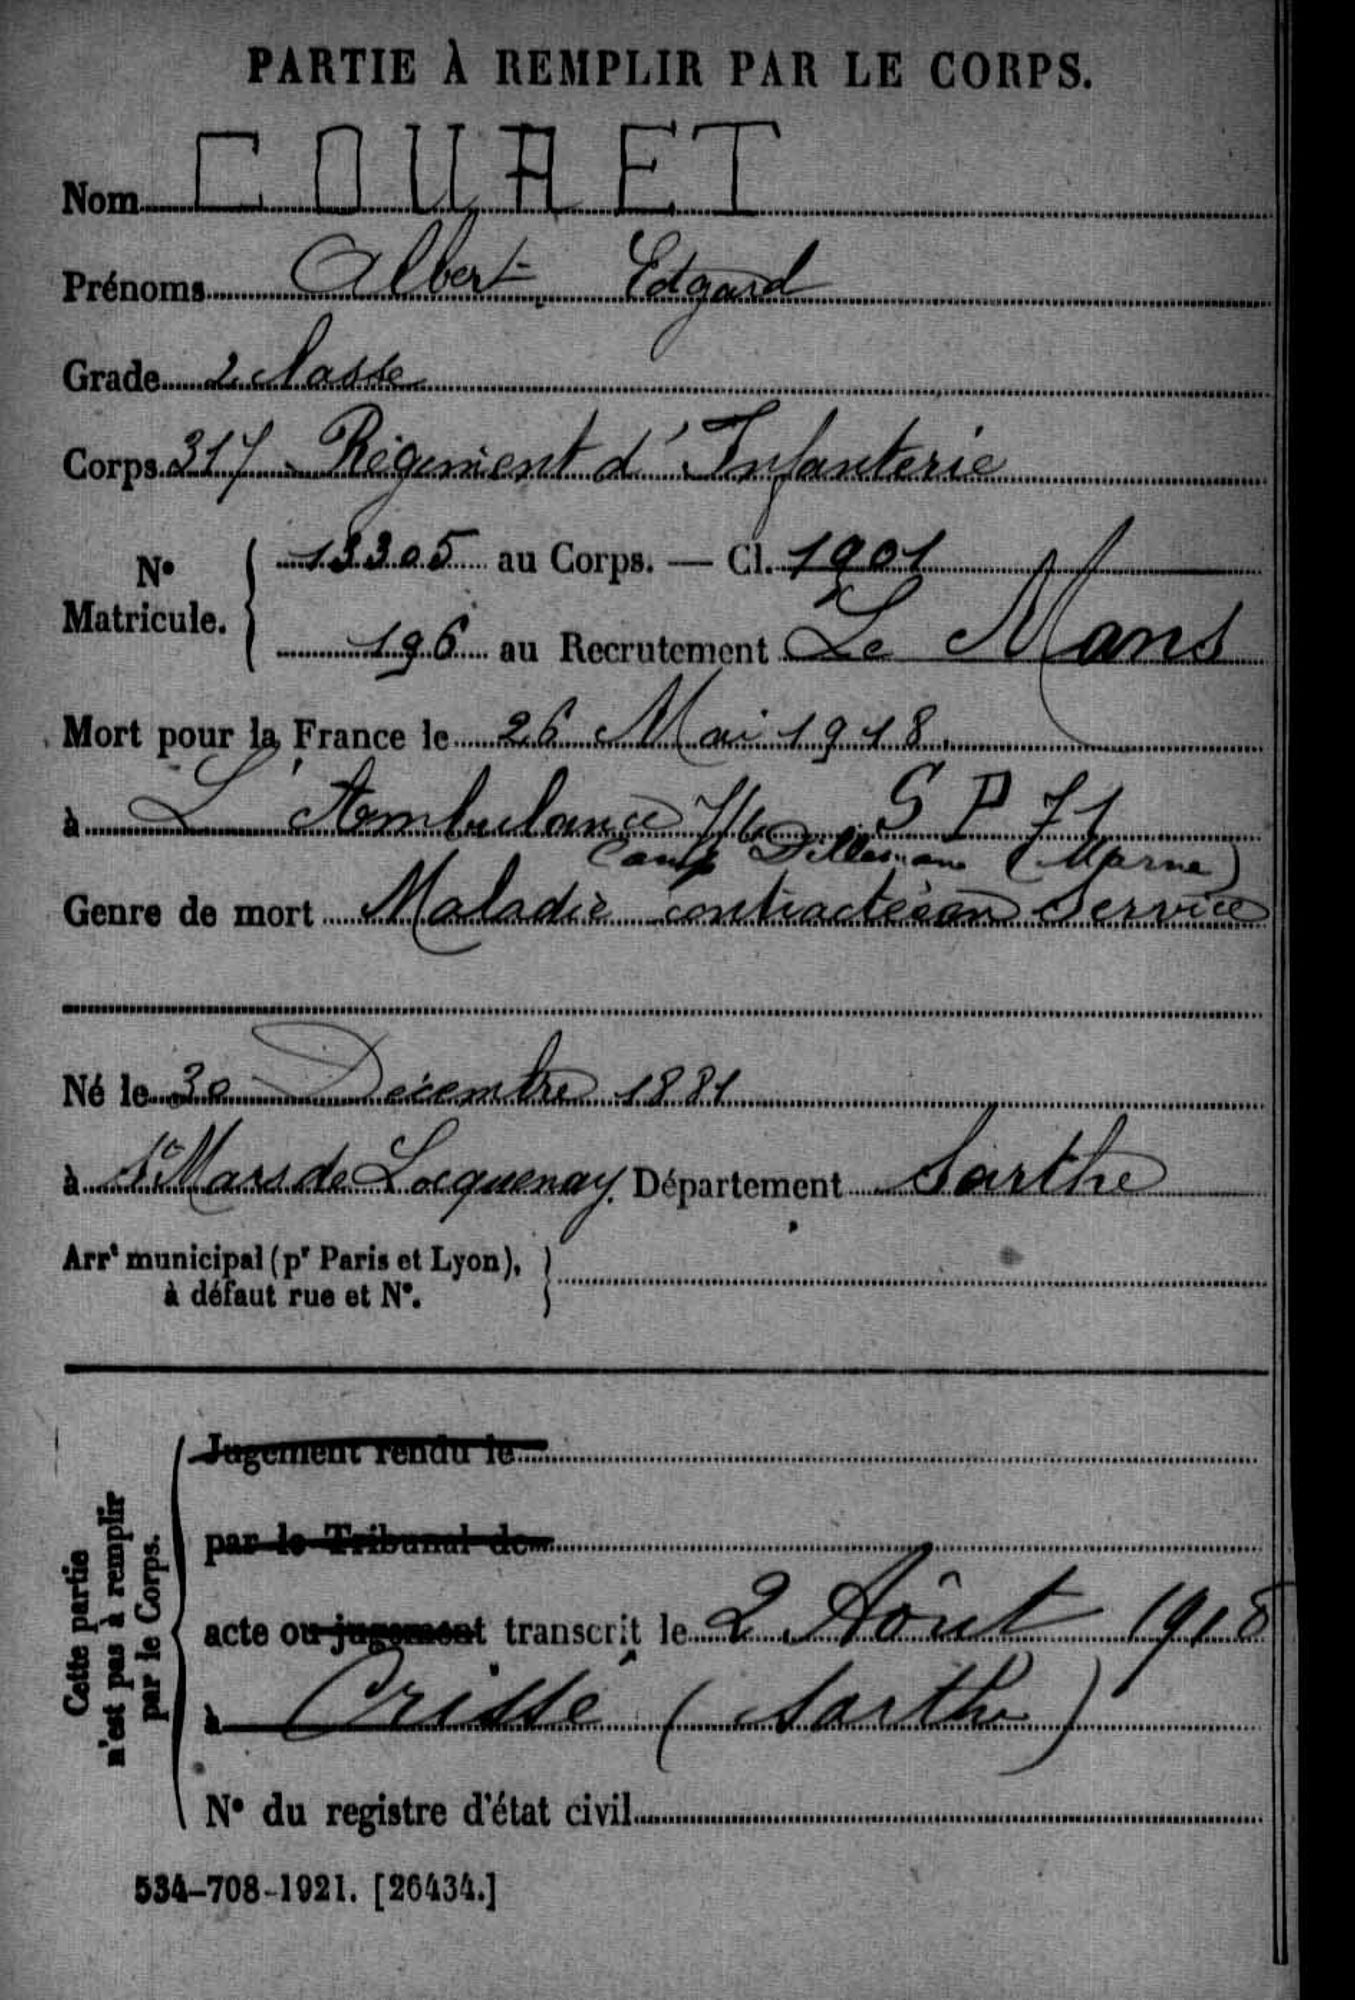 PARTIE À REMPLIR PAR LE CORPS.
Nom COUAET
Prénoms Albert Edgard
Grade 2 classe
Corps 317 Régiment d'Infanterie
N° Matricule. 13305 au Corps. — Cl. 1901
196 au Recrutement Le Mans
Mort pour la France le 26 Mai 1918
à L'Ambulance S P 71
Camp (Marne)
Genre de mort Maladie contractée en Service
Né le 30 Décembre 1881
à St Mars de Locquenay Département Sarthe
Arrt municipal (pr Paris et Lyon),
à défaut rue et N°.
Cette partie
n'est pas à remplir
par le Corps.
Jugement rendu le
par le Tribunal de
acte ou jugement transcrit le 2 Aôut 1918
à Crissé (Sarthe)
N° du registre d'état civil
534-708-1921. [26434.]